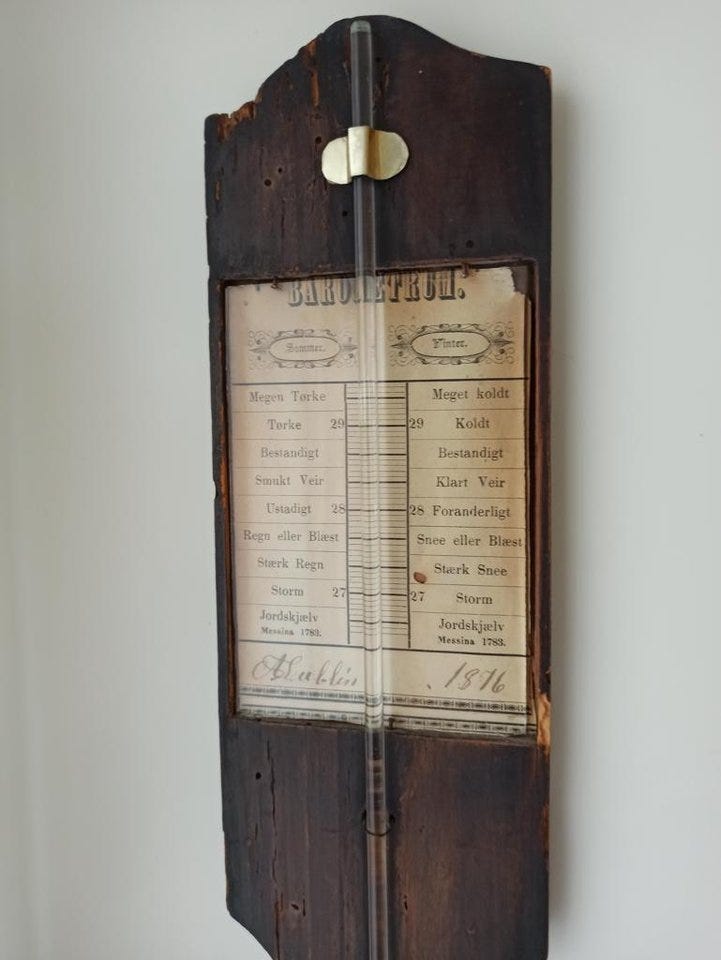 BAROMETRUM.
Sommer. Vinter.
Megen Tørke Meget koldt
Tørke 29 29 Koldt
Bestandigt Bestandigt
Smukt Veir Klart Veir
Ustadigt 28 28 Foranderligt
Regn eller Blæst Snee eller Blæst
Stærk Regn Stærk Snee
Storm 27 27 Storm
Jordskjælv Jordskjælv
Messina 1783. Messina 1783.
1876